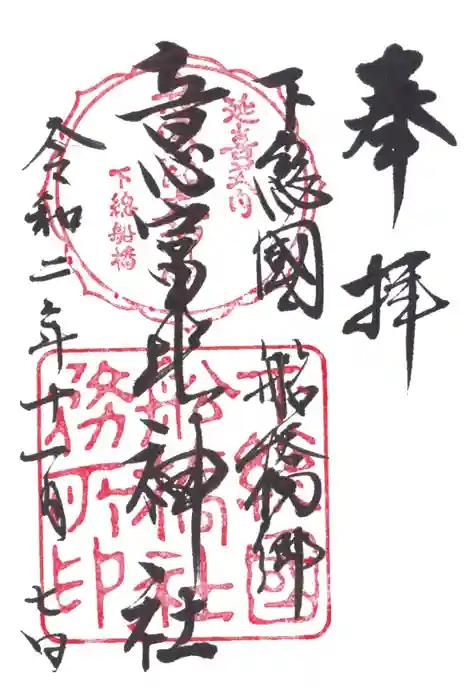 奉拝
下総國 船橋郷
意富比神社
令和二年十一月七日
延喜式内
下総船橋
船橋社
務所印